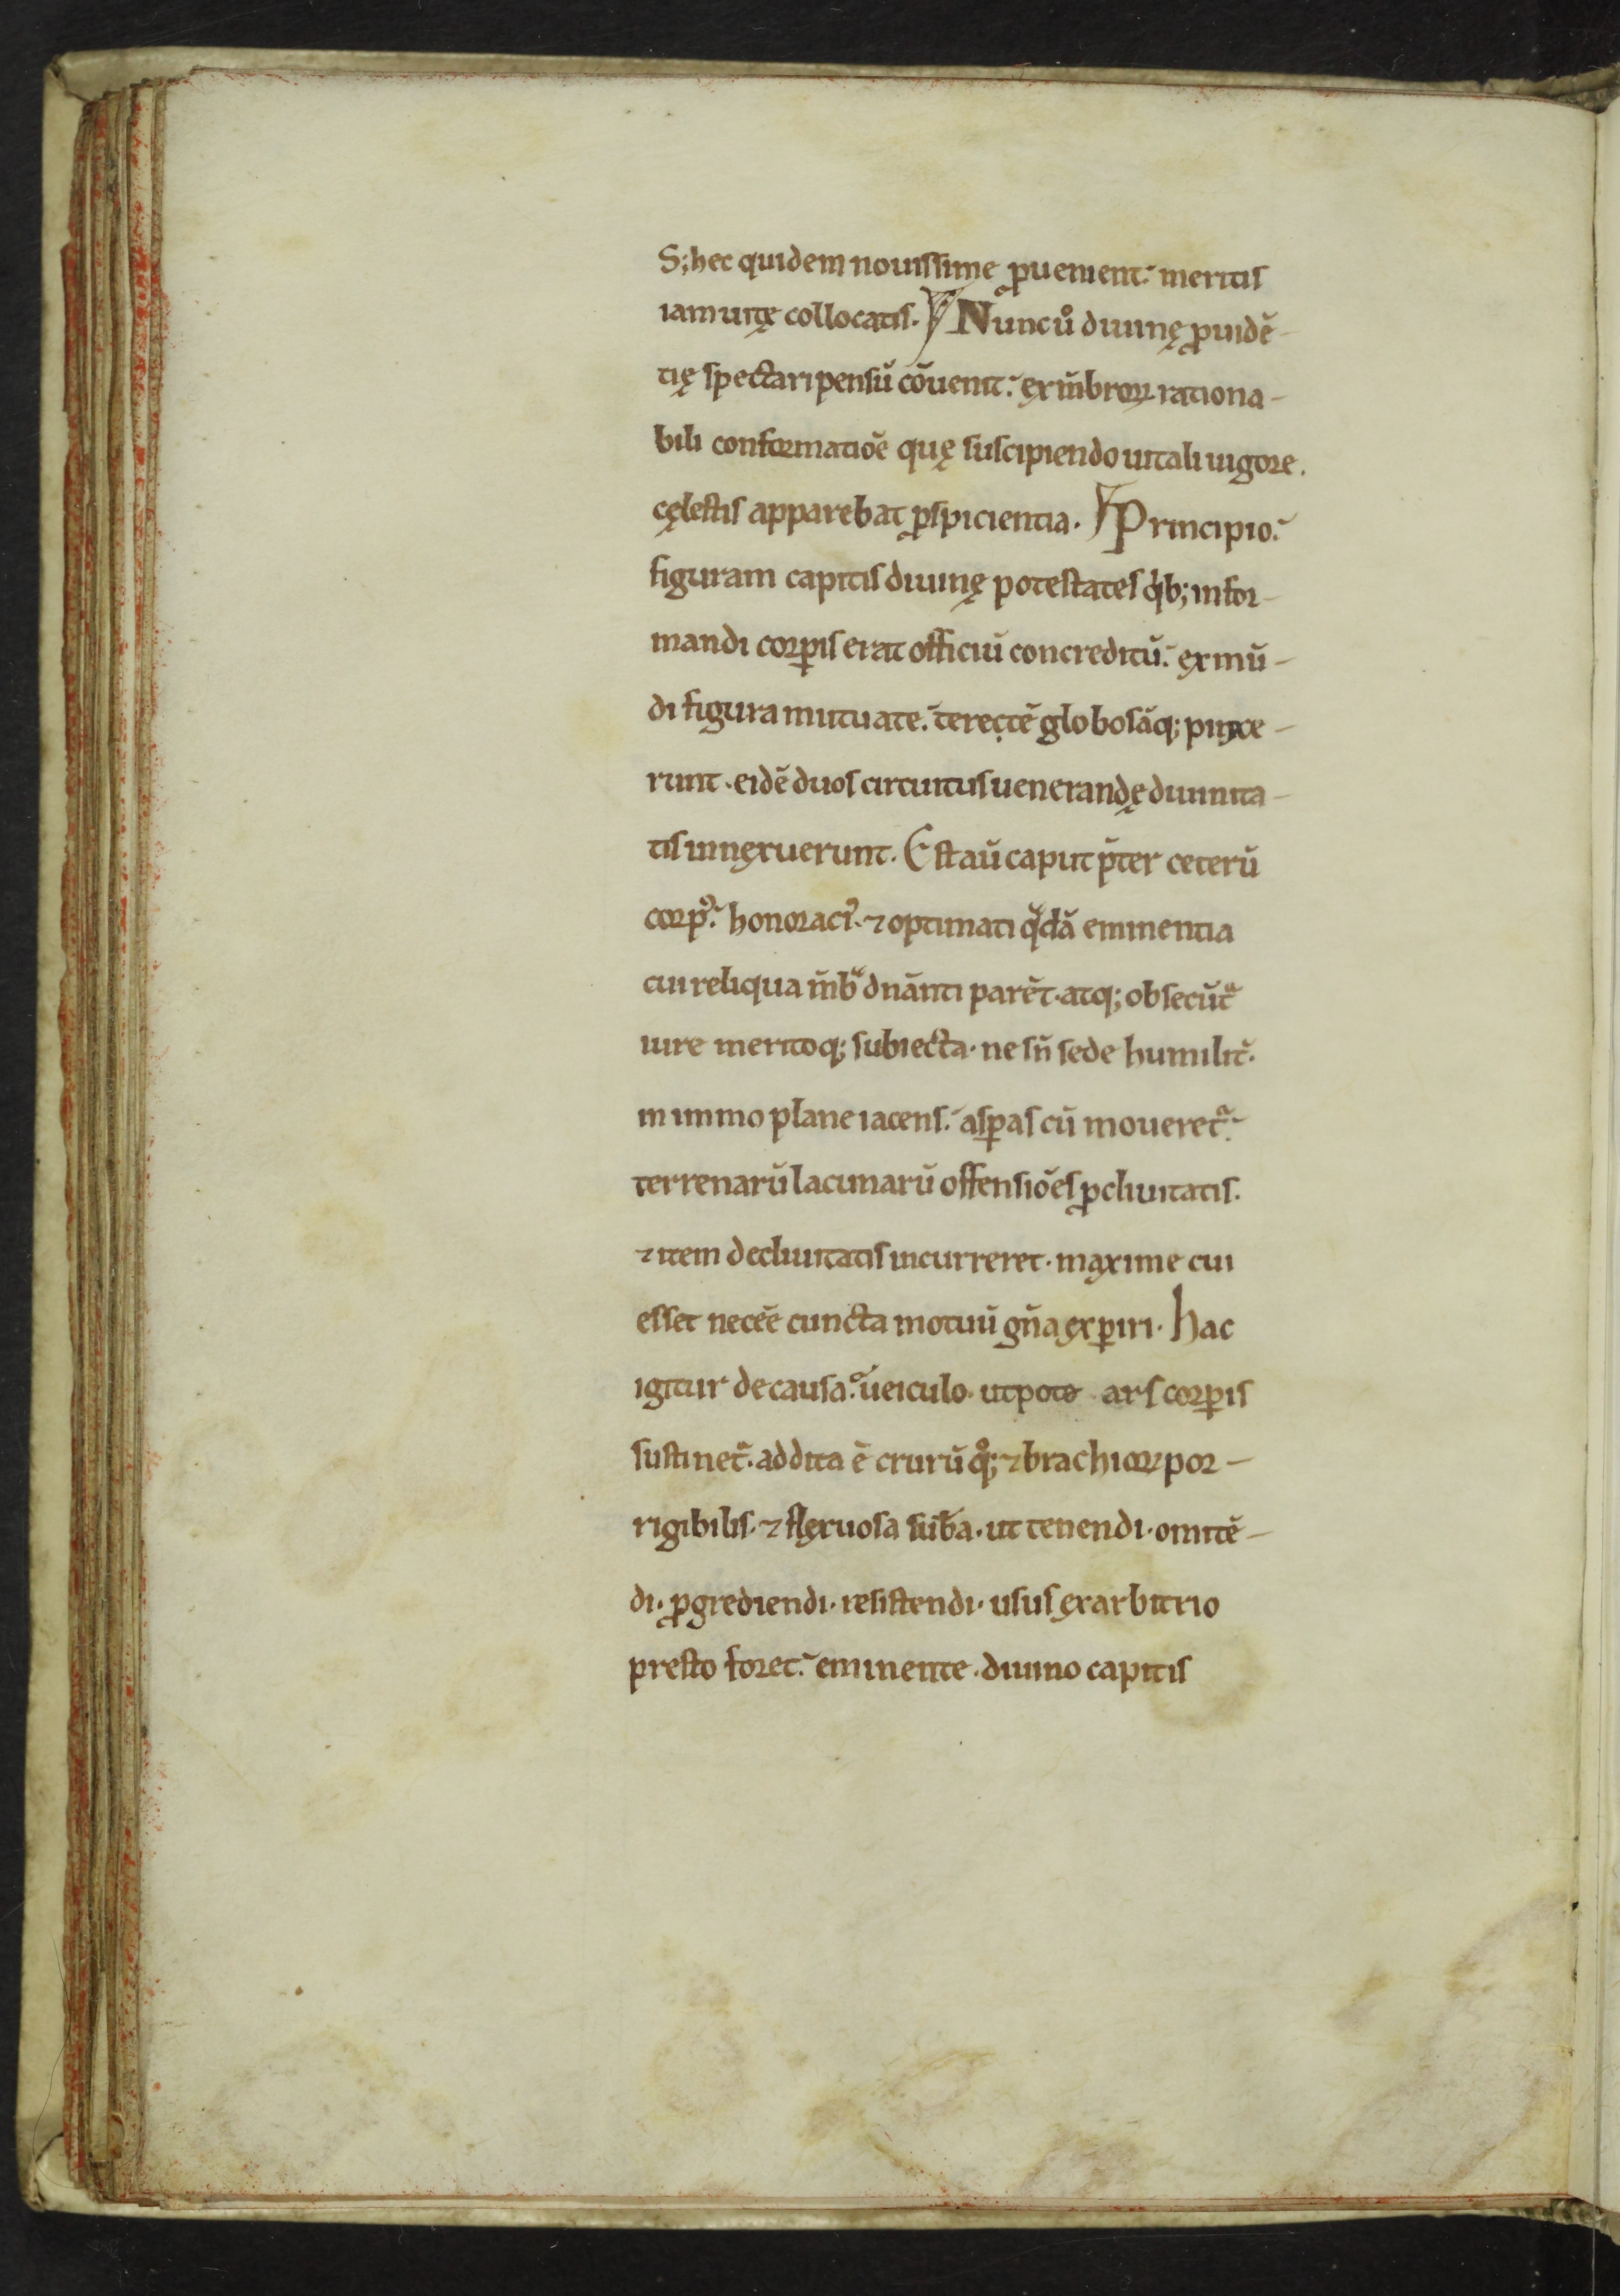 S; hec quidem nouissime ꝓuenient. meritis
iam uitę collocatis. Nunc ů diuinę ꝓuidē-
tię spectari pensū cōuenit. ex m̄broꝝ rationa-
bili conformatiōe quę suscipiendo uitali uigore.
cęlestis apparebat ꝑspicientia. Principio.
figuram capitis diuinę potestates qͥb; infor-
mandi corꝑis erat officiū concreditū. ex mū-
di figura mutuate. terectē globosāq; pinxe-
runt. eidē duos circuitus uenerandę diuinita-
tis innexuerunt. Est aū caput p̄ter ceterū
corpꝰ. honoraciꝰ. ⁊ optimati qͣdā eminentia
cui reliqua m̄bͣ dnānti parēt. atq; obsecūtͣ
iure meritoq; subiecta. ne sn̄ sede humilit̄.
in immo plane iacens. asꝑas cū mouereť.
terrenarū lacunarū offensiōes ꝓcliuitatis.
⁊ item decliuitatis incurreret. maxime cui
esset necēe cuncta motuū gn̄a exꝑiri. hac
igitur de causa. ueiculo. utpote ars corꝑis
sustineť. addita ē crurū qͦ; ⁊ brachioꝝ por-
rigibilis. ⁊ flexuosa sub̄a. ut tenendi. omitē-
di. ꝓgrediendi. resistendi. usus ex arbitrio
presto foret. eminente. diuino capitis